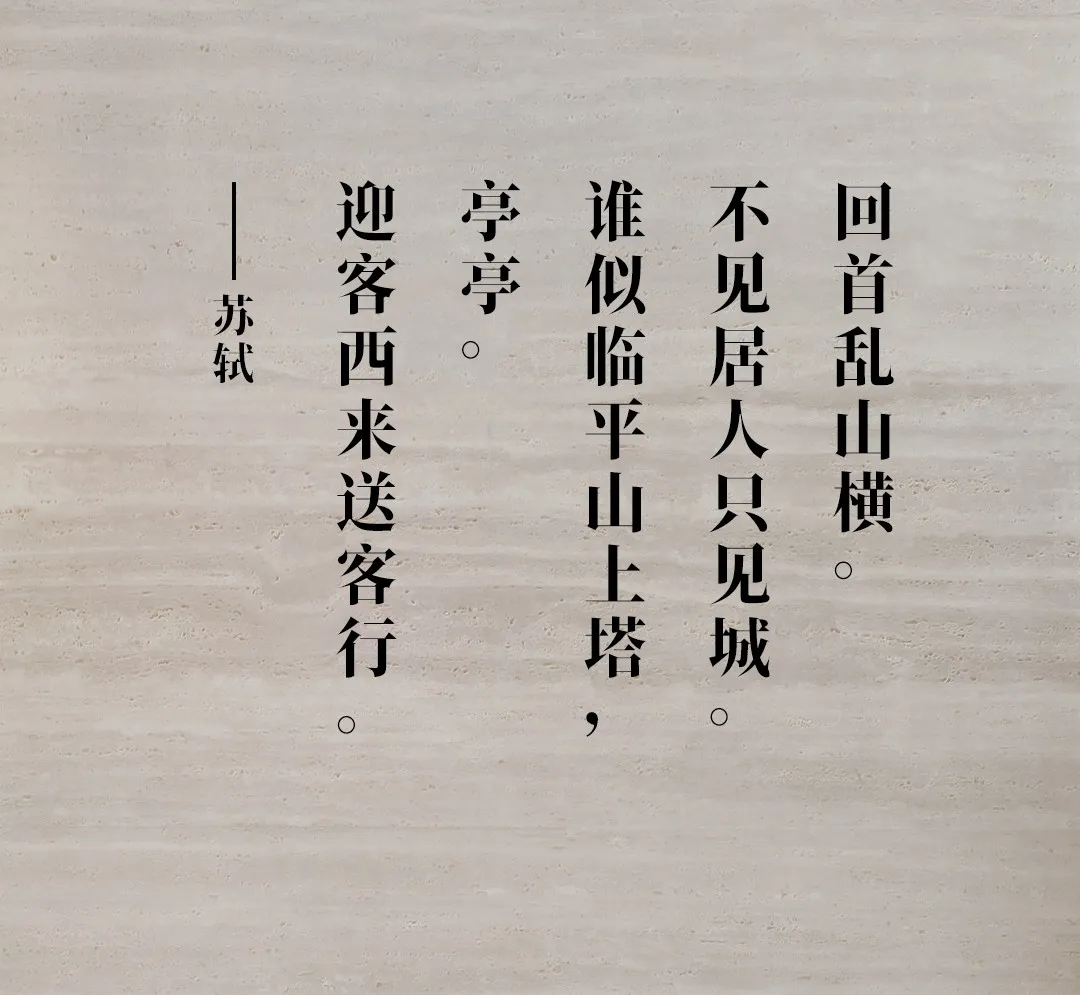 回首乱山横。
不见居人只见城。
谁似临平山上塔，
亭亭。
迎客西来送客行。
——苏轼